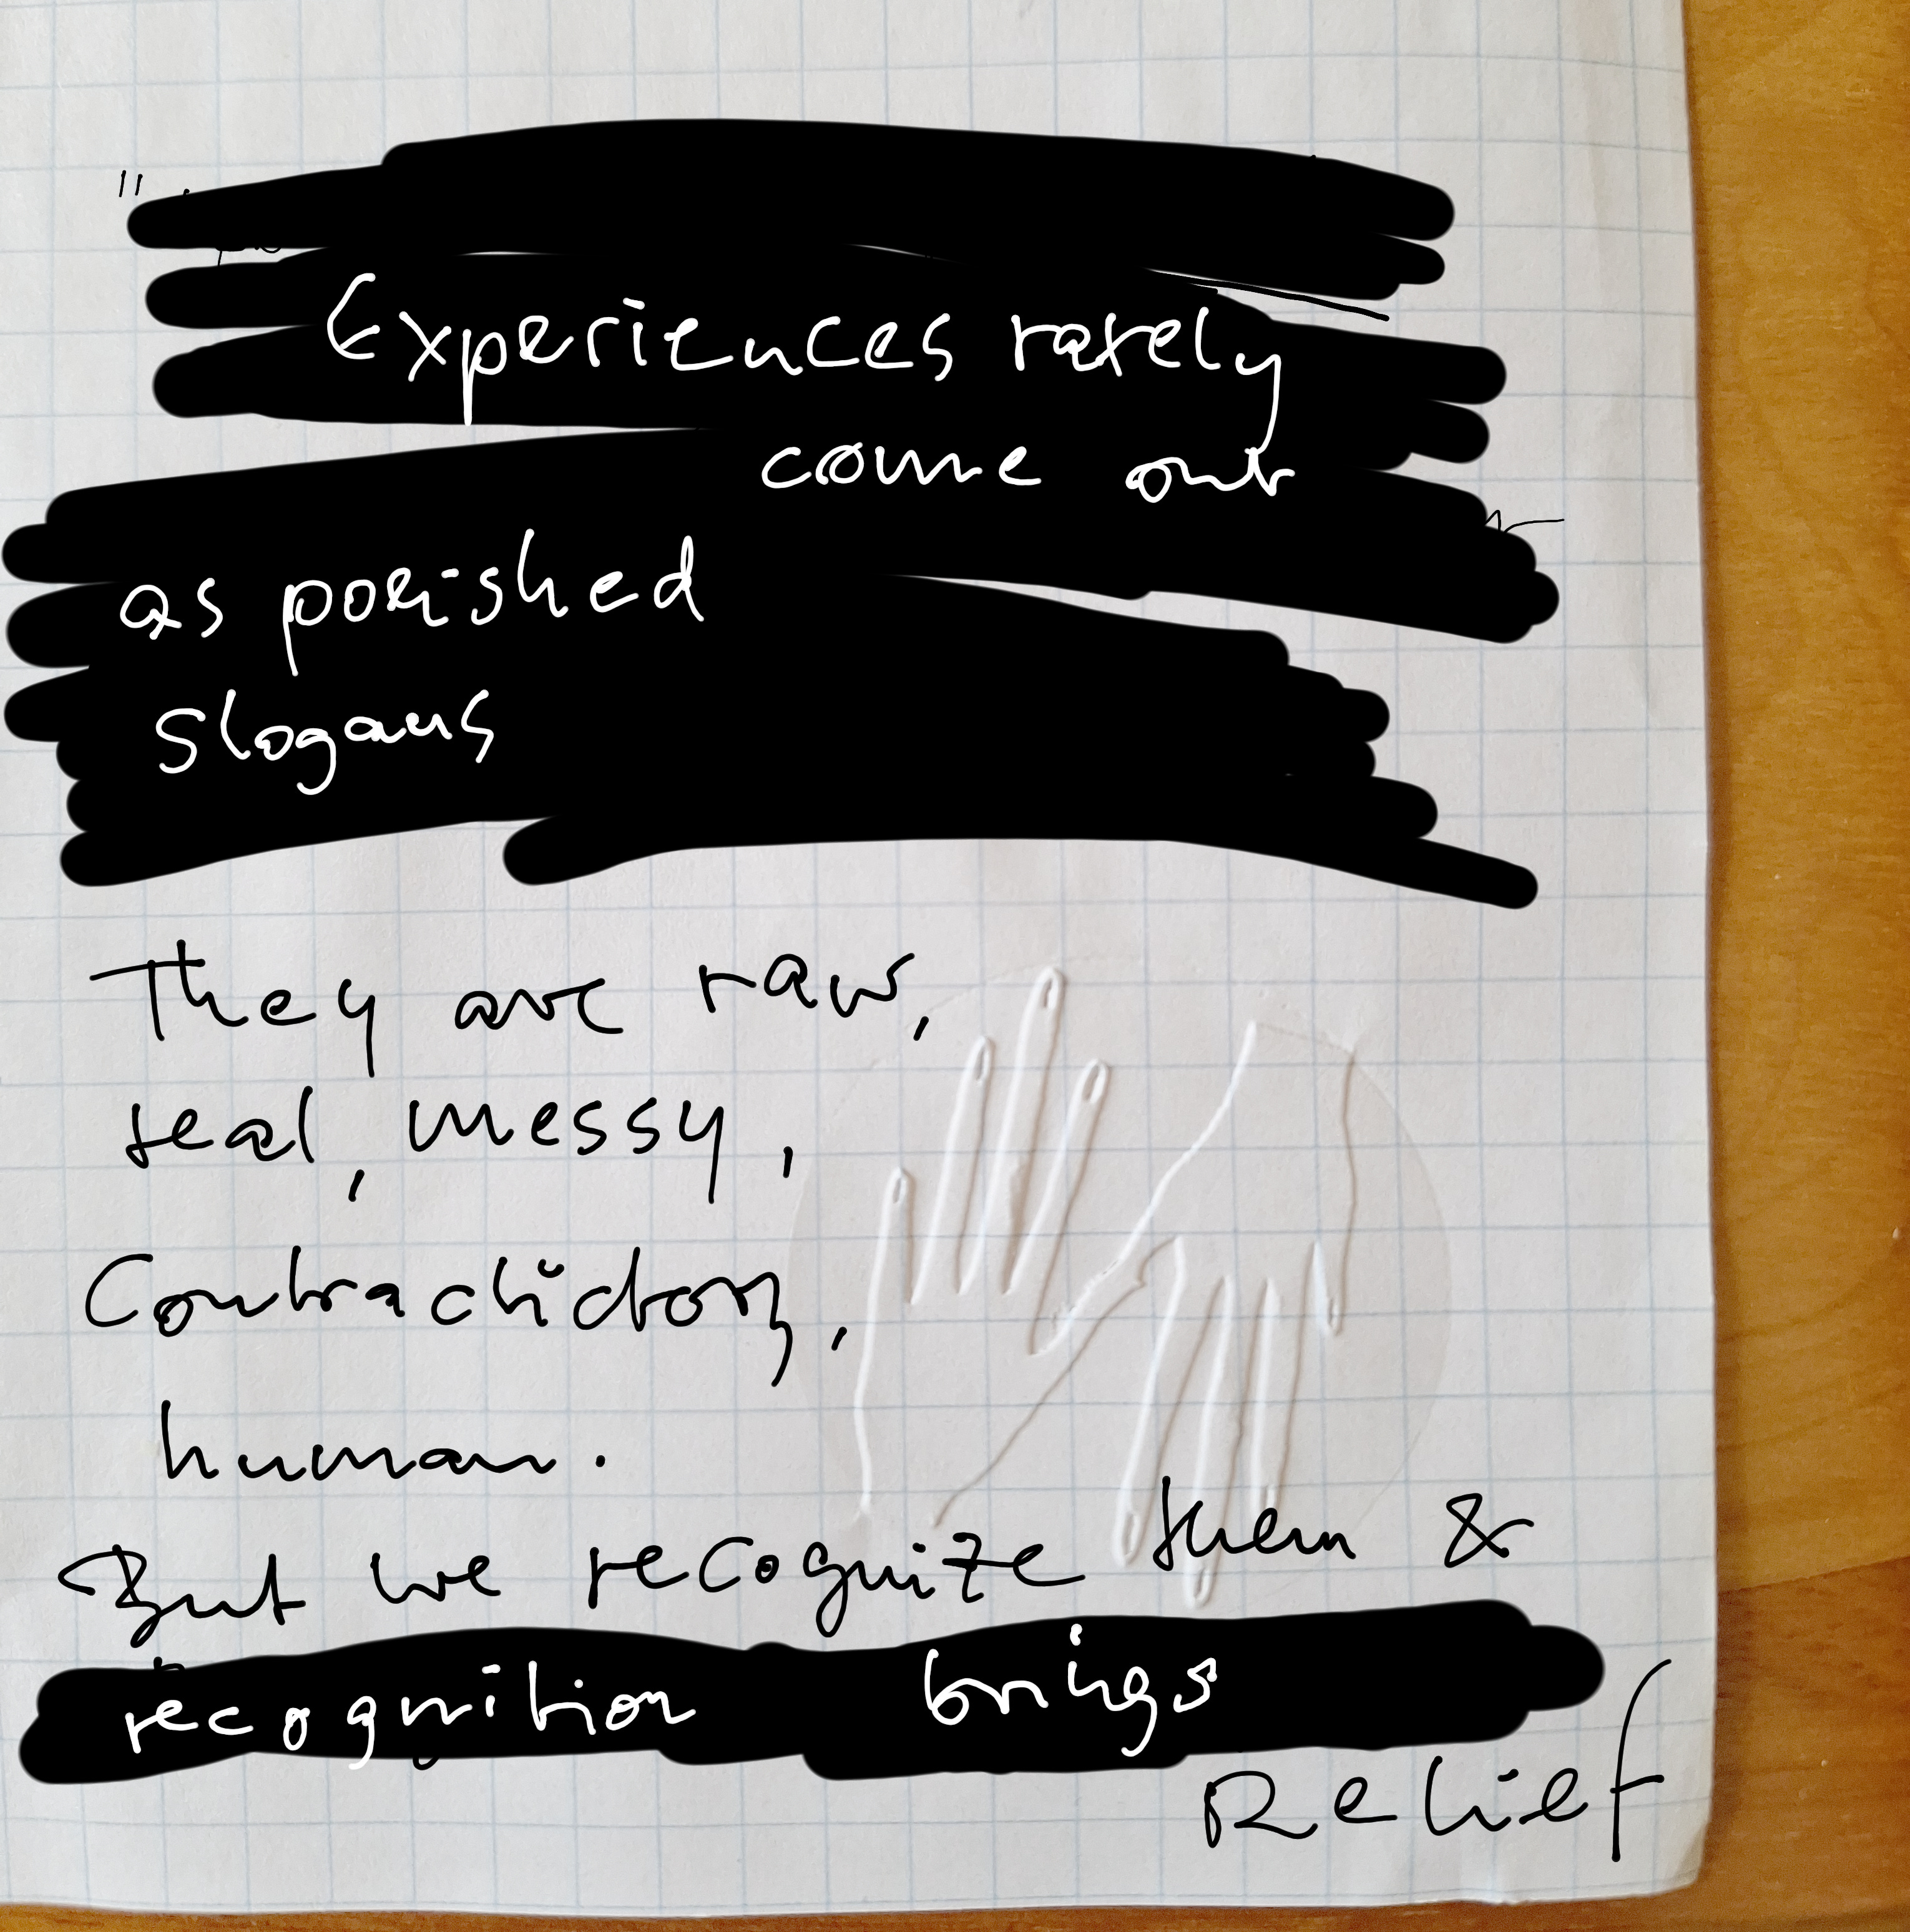 "
Experiences rarely
come out
as polished
slogans
They are raw,
real, messy,
Contradictory,
human.
But we recognize them &
recognition brings
Relief